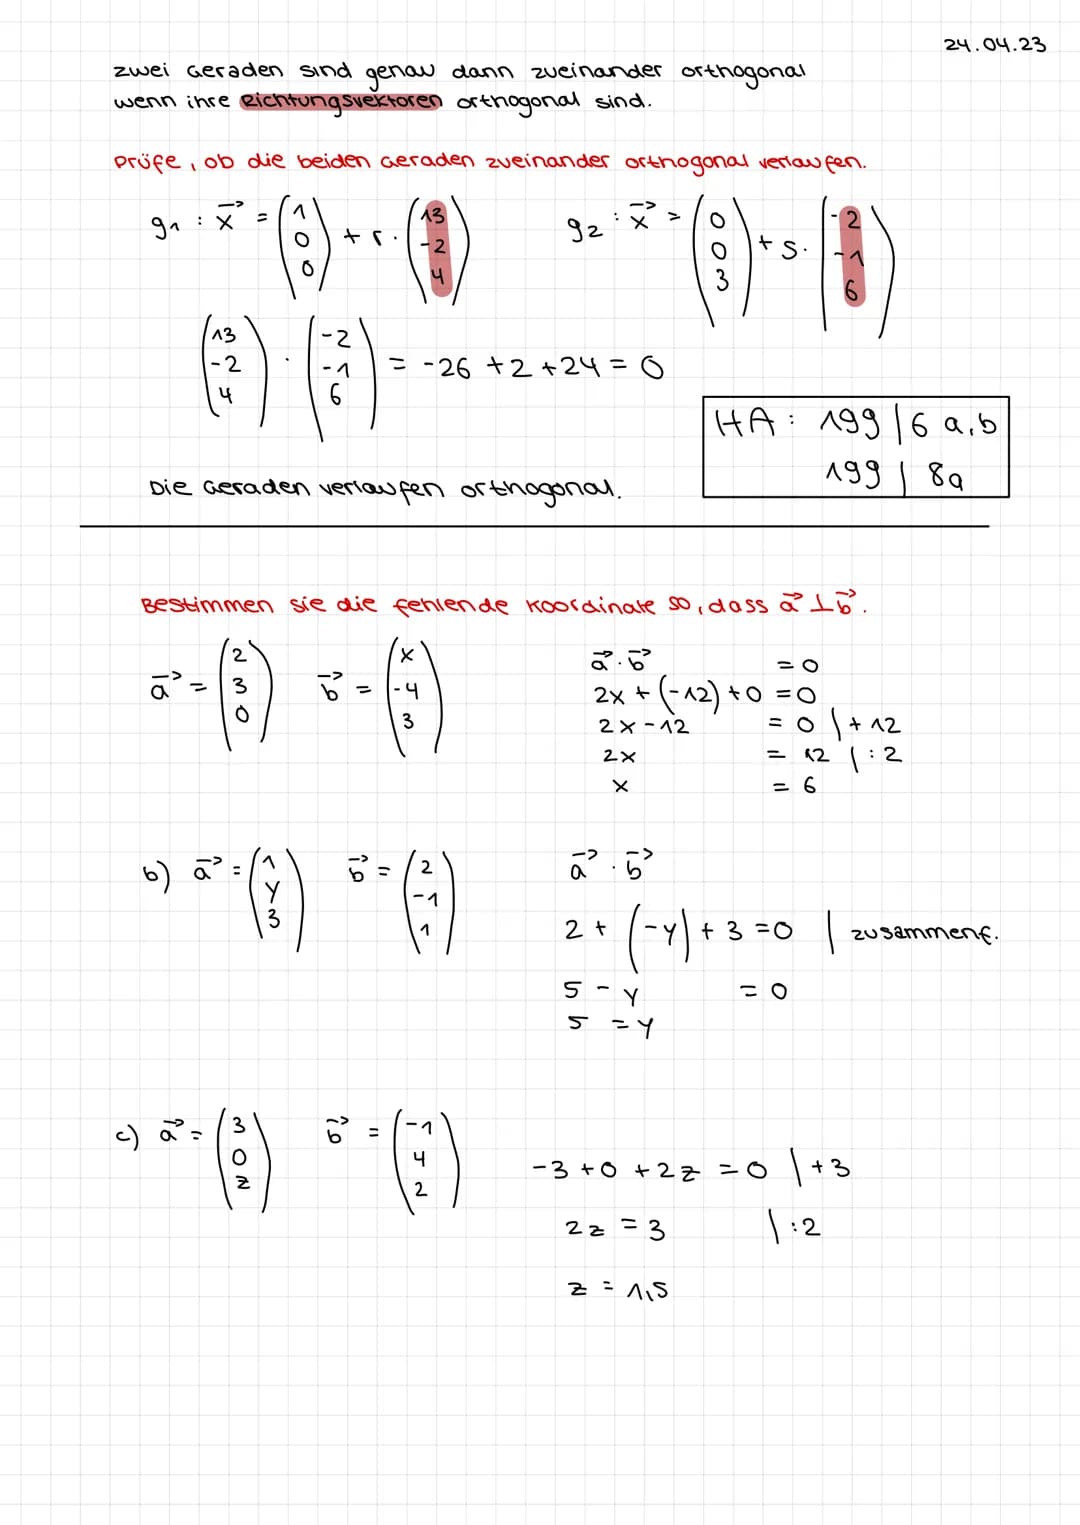 24.04.23
zwei Geraden sind genau dann zueinander orthogonal
wenn ihre Richtungsvektoren orthogonal sind.
Prüfe, ob die beiden Geraden zueinander orthogonal verlaufen.
g₁ : x⃗ = (1 0 0) + r · (13 -2 4) g₂ : x⃗ = (0 0 3) + s · (-2 -1 6)
(13 -2 4) · (-2 -1 6) = -26 + 2 + 24 = 0
HA: 199 | 6 a,b
199 | 8a
Die Geraden verlaufen orthogonal.
Bestimmen sie die fehlende Koordinate so, dass a⃗ ⊥ b⃗.
a⃗ = (2 3 0) b⃗ = (x -4 3)
a⃗ · b⃗ = 0
2x + (-12) + 0 = 0
2x - 12 = 0 | + 12
2x = 12 | : 2
x = 6
b) a⃗ = (1 y 3) b⃗ = (2 -1 1)
a⃗ · b⃗
2 + (-y) + 3 = 0 | zusammenf.
5 - y = 0
5 = y
c) a⃗ = (3 0 z) b⃗ = (-1 4 2)
-3 + 0 + 2z = 0 | +3
2z = 3 | :2
z = 1,5